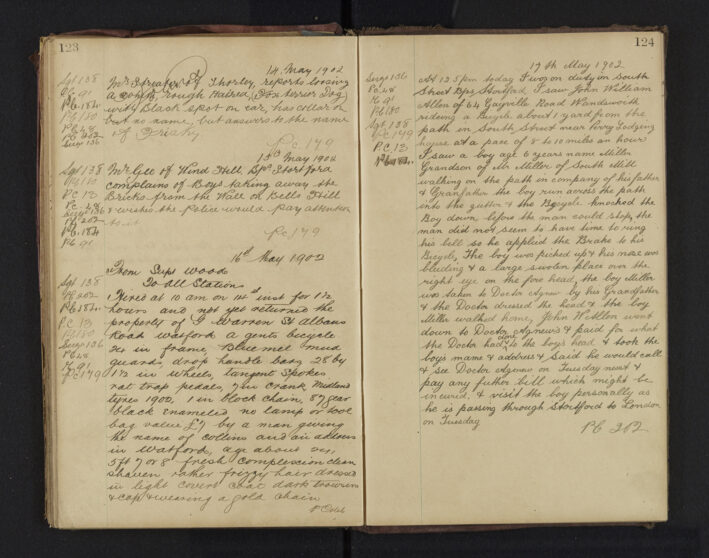 123
14 May 1902
Sgt 138
Pc 91
Pc 184
Pc 180
Pc 48
Pc 202
Surg 136
Mr of Thorley reports loosing
a White rough Haired Fox terrier Dog
with black spot on ear, has collar on
but no name, but answers to the name
of
Pc 179
15th May 1902
Sgt 138
Pc 180
Pc 13
Pc 48
Surg 136
Pc 202
Pc 184
Pc 91
Mr Gee of Wind Hill Bps Stortford
complains of Boys taking away the
Bricks from the Wall on Bells Hill
& wishes the Police would pay attention
to it
Pc 179
16th May 1902
From Supt Wood
To All Stations
Sgt 138
Pc 202
Pc 184
P.C. 13
Pc 180
Surg 136
Pc 48
Pc 91
Pc 179
Hired at 10 am on 14th inst for 1½
hours and not yet returned the
property of G Warren St Albans
Road Watford a gents bicycle
in frame Bluemel mud
guards, drop handle bars 28 by
1½ in wheels, tangent spokes
rat trap pedals, 7 in crank Midland
tyres 1902, 1 in block chain, 87 gear
black enameled no lamp or tool
bag value £7 by a man giving
the name of Collins and an address
in Watford, age about
5 ft 7 or 8 fresh complexion clean
shaven rather frizzy hair dressed
in light covert coat dark trousers
& cap & wearing a gold chain
124
17th May 1902
Surg 136
Pc 48
Pc 91
Pc 180
Sgt 138
Pc 179
P.C. 13
At 12.5 pm today I was on duty in South
Street Bps Stortford, I saw John William
Allen of 64 Gayville Road Wandsworth
rideing a Bicycle about 1 yard from the
path in South Street near Perry Lodgeing
house at a pace of 8 to 10 miles an hour
I saw a boy age 6 years name Miller
Grandson of Mr Miller of South Mill
walking on the path in company of his father
& Granfather the boy run across the path
into the gutter & the Bycycle knocked the
Boy down before the man could stop, the
man did not seem to have time to ring
his bell so he applied the Brake to his
Bicycle, The boy was picked up & his nose was
bleeding & a large swolen place over the
right eye on the fore head, the boy Miller
was taken to Doctor Agnew by his Grandfather
& the Doctor dressed the head & the boy
Miller walked home, John W Allen went
down to Doctor Agnews & paid for what
the Doctor had done to the boy's head & took the
boy's name & address & said he would call
& see Doctor Agnew on Tuesday next &
pay any futher bill which might be
incured. & visit the boy personally as
he is passing through Stortford to London
on Tuesday
PC 202